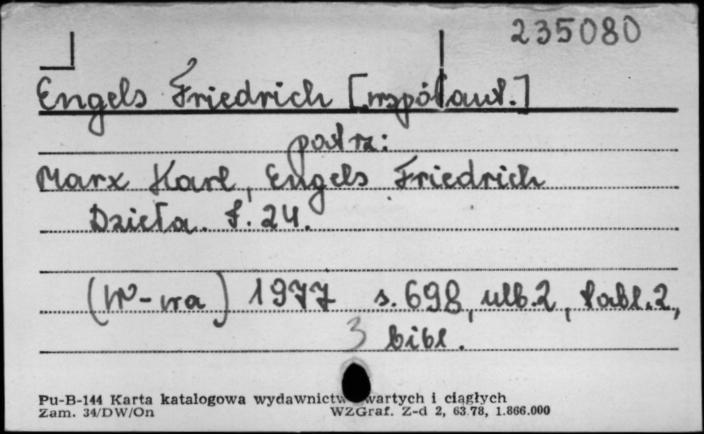 235080
Engels Friedrich [współaut.]
patrz:
Marx Karl, Engels Friedrich
Dzieła. t. 24.
(W-wa) 1977 s. 698, nlb. 2, tabl. 2,
3 bibl.
Pu-B-144 Karta katalogowa wydawnictw zwartych i ciągłych
Zam. 34/DW/On WZGraf. Z-d 2, 63.78, 1.866.000